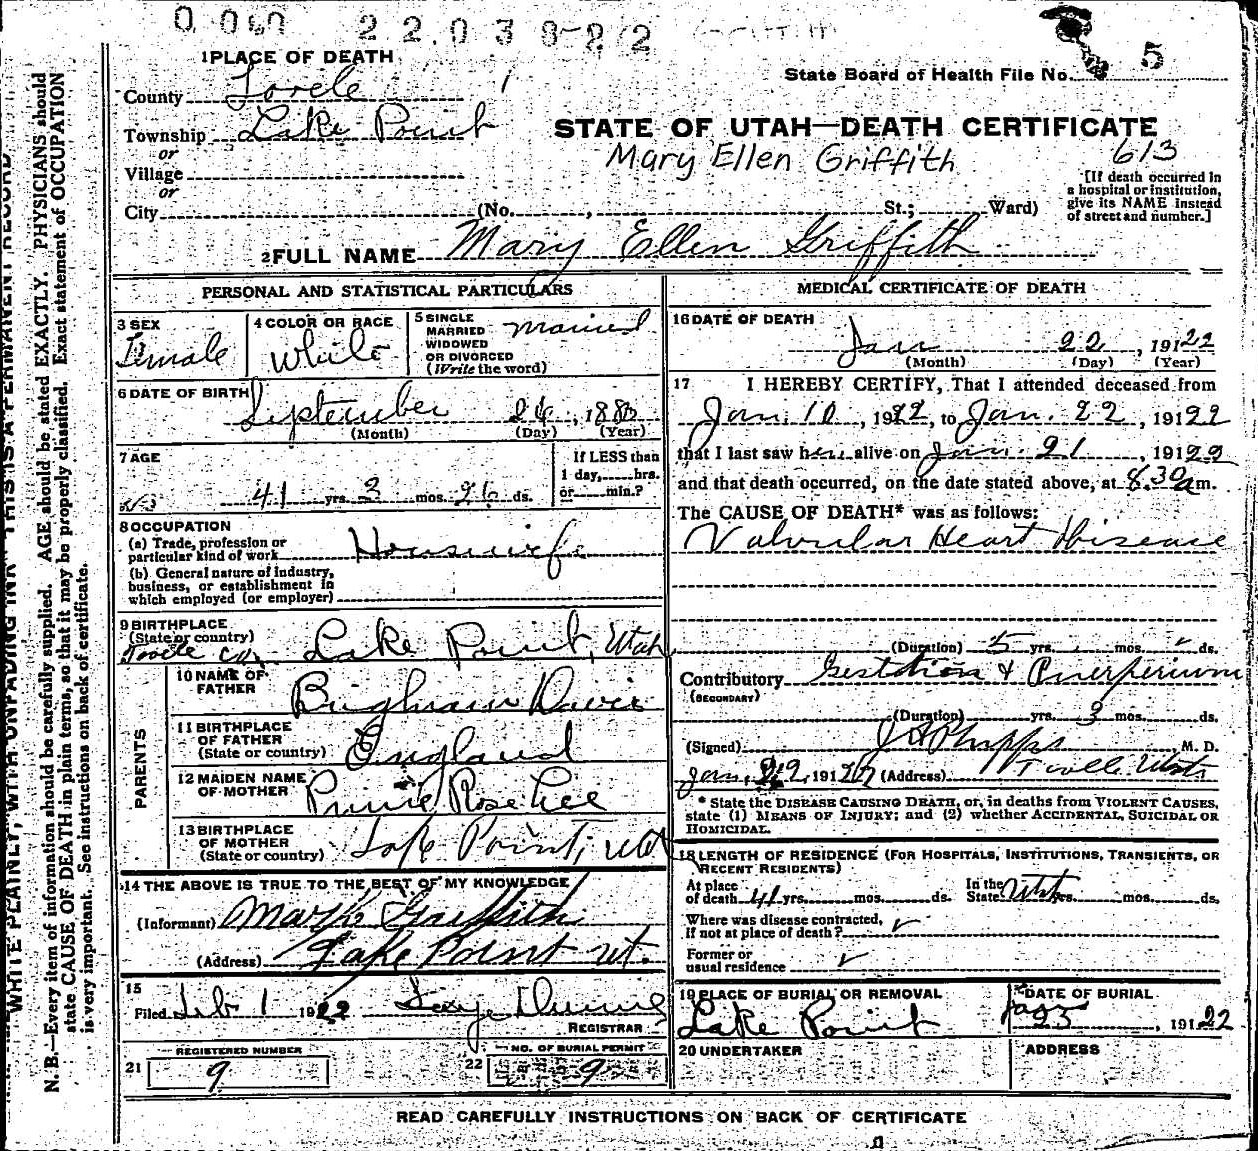 0 060 22 03 8-22
1 PLACE OF DEATH
State Board of Health File No. 5
County Tooele
Township Lake Point
or
Village
or
City (No. , St.; Ward)
STATE OF UTAH—DEATH CERTIFICATE
Mary Ellen Griffith 613
[If death occurred in
a hospital or institution,
give its NAME instead
of street and number.]
2 FULL NAME Mary Ellen Griffith
PERSONAL AND STATISTICAL PARTICULARS
3 SEX
Female
4 COLOR OR RACE
White
5 SINGLE
MARRIED
WIDOWED
OR DIVORCED
(Write the word)
Married
6 DATE OF BIRTH
September 26, 1880
(Month) (Day) (Year)
7 AGE
41 yrs. 3 mos. 26 ds.
If LESS than
1 day, hrs.
or min.?
8 OCCUPATION
(a) Trade, profession or
particular kind of work Housewife
(b) General nature of industry,
business, or establishment in
which employed (or employer)
9 BIRTHPLACE
(State or country)
Tooele Co. Lake Point, Utah
PARENTS
10 NAME OF
FATHER
Brigham Davis
11 BIRTHPLACE
OF FATHER
(State or country)
England
12 MAIDEN NAME
OF MOTHER
Rose Lee
13 BIRTHPLACE
OF MOTHER
(State or country)
Lake Point, Utah
14 THE ABOVE IS TRUE TO THE BEST OF MY KNOWLEDGE
(Informant) Mark Griffith
(Address) Lake Point Ut.
15
Filed Feb 1 1922
REGISTRAR
REGISTERED NUMBER
21 9
NO. OF BURIAL PERMIT
22 9
MEDICAL CERTIFICATE OF DEATH
16 DATE OF DEATH
Jan 22, 19122
(Month) (Day) (Year)
17 I HEREBY CERTIFY, That I attended deceased from
Jan. 10, 1922, to Jan. 22, 19122
that I last saw her alive on Jan. 21, 19122
and that death occurred, on the date stated above, at 8.30 a m.
The CAUSE OF DEATH* was as follows:
Valvular Heart Disease
(Duration) 5 yrs. mos. ds.
Contributory Gestation & Puerperium
(SECONDARY)
(Duration) yrs. 3 mos. ds.
(Signed) J A Phipps, M. D.
Jan. 22, 19122 (Address) Tooele Utah
* State the DISEASE CAUSING DEATH, or, in deaths from VIOLENT CAUSES,
state (1) MEANS OF INJURY; and (2) whether ACCIDENTAL, SUICIDAL OR
HOMICIDAL.
18 LENGTH OF RESIDENCE (FOR HOSPITALS, INSTITUTIONS, TRANSIENTS, OR
RECENT RESIDENTS)
At place
of death 41 yrs. mos. ds.
In the
State Utah yrs. mos. ds.
Where was disease contracted,
If not at place of death?
Former or
usual residence
19 PLACE OF BURIAL OR REMOVAL
Lake Point
DATE OF BURIAL
Jan 25, 19122
20 UNDERTAKER
ADDRESS
READ CAREFULLY INSTRUCTIONS ON BACK OF CERTIFICATE
WRITE PLAINLY, WITH UNFADING INK—THIS IS A PERMANENT RECORD
N. B.—Every item of information should be carefully supplied. AGE should be stated EXACTLY. PHYSICIANS should
state CAUSE OF DEATH in plain terms, so that it may be properly classified. Exact statement of OCCUPATION
is very important. See instructions on back of certificate.